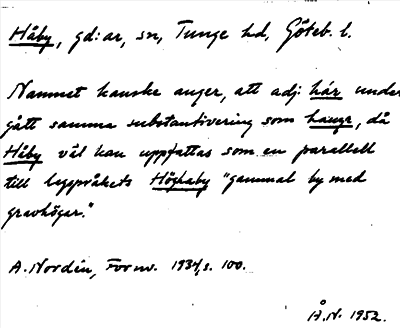 Håby, gd:ar, sn, Tunge hd, Göteb. l.
Namnet kanske anger, att adj. hár under
gått samma substantivering som haugr, då
Håby väl kan uppfattas som en parallell
till leppråkets Högkaby "gammal by med
gravhögar."
A. Nordén, Fornv. 1934, s. 100.
Å.N. 1952.